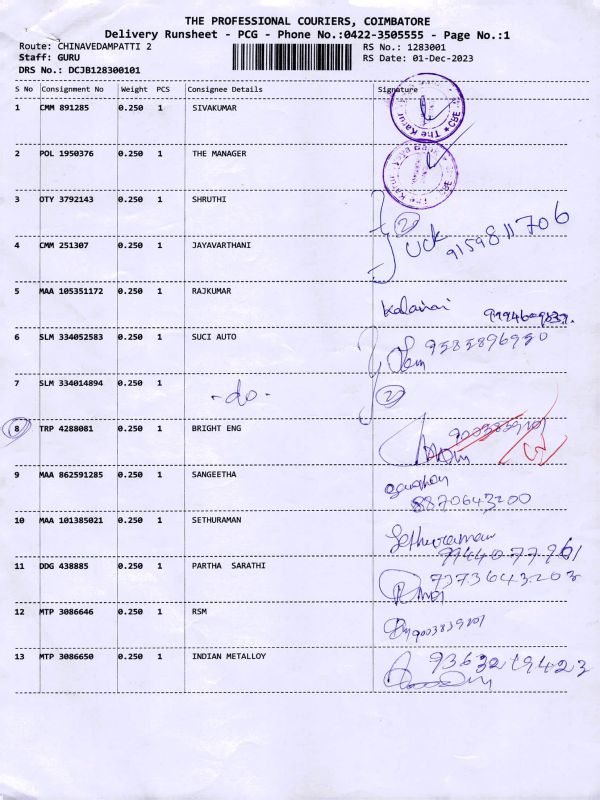 THE PROFESSIONAL COURIERS, COIMBATORE
Delivery Runsheet - PCG - Phone No.:0422-3505555 - Page No.:1
Route: CHINAVEDAMPATTI 2 RS No.: 1283001
Staff: GURU RS Date: 01-Dec-2023
DRS No.: DCJB128300101
S No Consignment No Weight PCS Consignee Details Signature
1 CMM 891285 0.250 1 SIVAKUMAR
The Karur CBE
2 POL 1950376 0.250 1 THE MANAGER
The Karur CBE
3 OTY 3792143 0.250 1 SHRUTHI
2
UCK 9159811706
4 CMM 251307 0.250 1 JAYAVARTHANI
5 MAA 105351172 0.250 1 RAJKUMAR
6 SLM 334052583 0.250 1 SUCI AUTO
9585896950
7 SLM 334014894 0.250 1 -do-
2
8 TRP 4288081 0.250 1 BRIGHT ENG
9 MAA 862591285 0.250 1 SANGEETHA
8870643200
10 MAA 101385021 0.250 1 SETHURAMAN
Sethuraman
9944077961
11 DDG 438885 0.250 1 PARTHA SARATHI
7373643203
12 MTP 3086646 0.250 1 RSM
9003839201
13 MTP 3086650 0.250 1 INDIAN METALLOY
9363219423